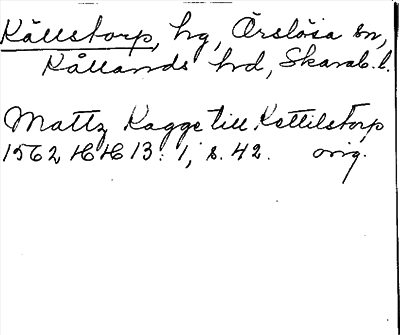 Källstorp, hg, Örslösa sn,
Kållands hd, Skarab. l.
Mattz Kagge till Kettilstorp
1562 HH 13: 1, s. 42. orig.